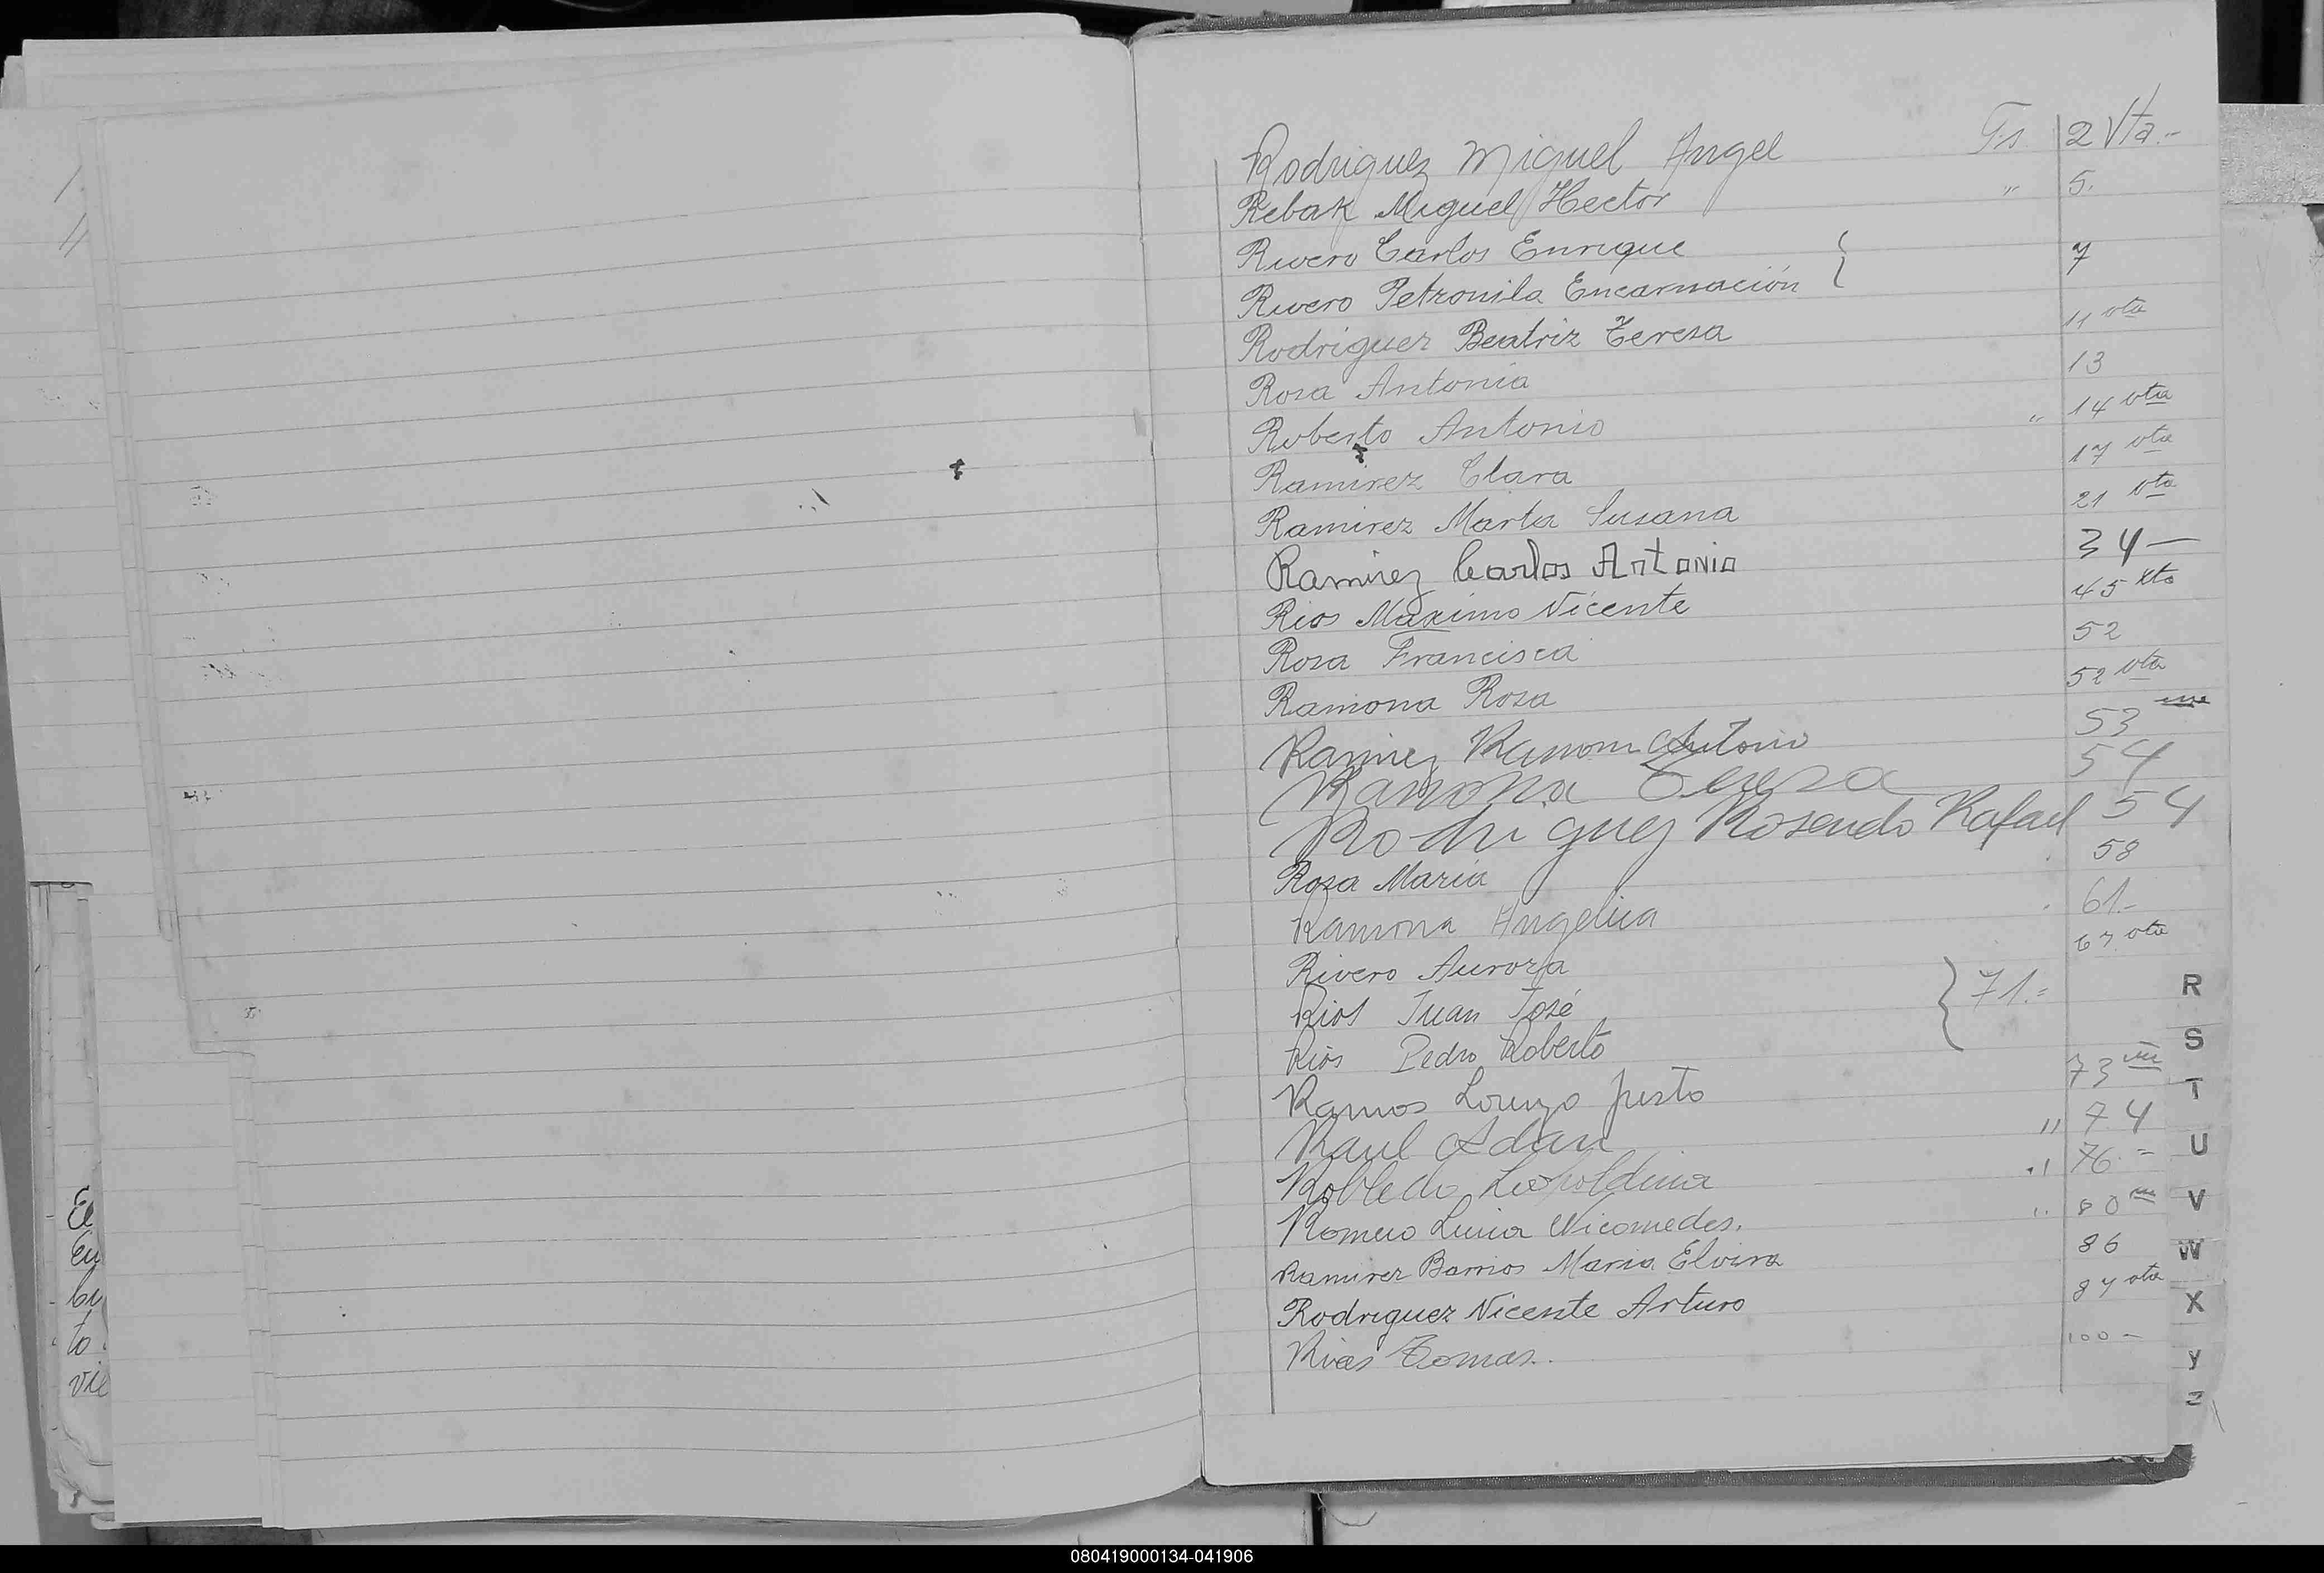 Rodriguez Miguel Angel Fs 2 Vta.-
Rebak Miguel Hector " 5.
Rivero Carlos Enrique { 7
Rivero Petronila Encarnación
Rodriguez Beatriz Teresa 11 vta
Rosa Antonia 13
Roberto Antonio " 14 vta
Ramirez Clara 17 vta
Ramirez Marta Susana 21 vta
Ramirez Carlos Antonio 34 —
Rios Maximo Vicente 45 vta
Rosa Francisca 52
Ramona Rosa 52 vta
Ramirez Ramon Antonio 53
Ramona Teresa 54
Rodriguez Rosendo Rafael 54
Rosa Maria 58
Ramona Angelica 61.-
Rivero Aurora 67 vta
Rios Juan José } 71.=
Rios Pedro Roberto
Ramos Lorenzo Justo 73
Raul Adan " 74
Robledo Leopoldina " 76.=
Romero Lucia Nicomedes. " 80
Ramirez Barrios Maria Elvira 86
Rodriguez Vicente Arturo 87 vta
Rivas Tomas. 100 -
R
S
T
U
V
W
X
y
Z
El
en
to
vie
080419000134-041906